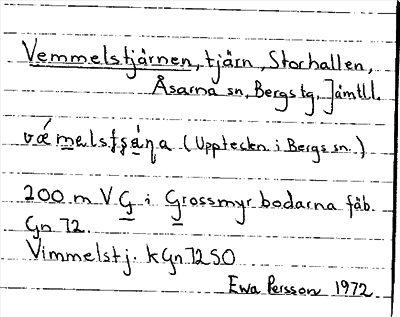 Vemmelstjärnen, tjärn, Storhallen,
Åsarna sn, Bergs tg, Jämtl.
(Uppteckn. i Bergs sn.)
200 m V G i Grossmyrbodarna fäb.
Gn 72.
Vimmelstj. kGn 72 SO
Ewa Persson 1972